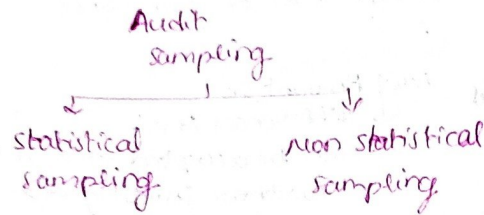 Audit
sampling
statistical
sampling
Non statistical
sampling